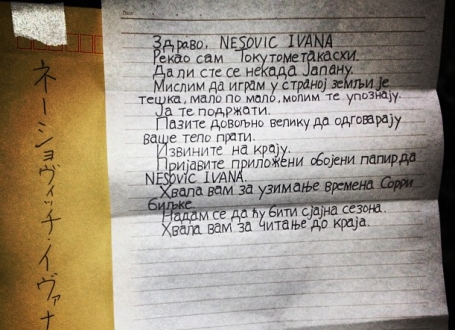 Здраво, NESOVIC IVANA
Рекао сам Токутометакаски.
Да ли сте се некада Јапану.
Мислим да играм у страној земљи је
тешка, мало по мало, молим те упознају.
Ја те подржати.
Пазите довољно велику да одговарају
ваше тело прати.
Извините на крају.
Пријавите приложени обојени папир да
NESOVIC IVANA.
Хвала вам за узимање времена Сорри
биљке.
Надам се да ћу бити сјајна сезона.
Хвала вам за читање до краја.
ネーショヴィッチ・イヴァナ